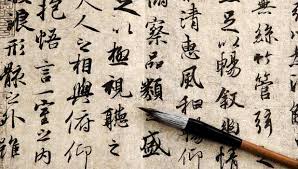 無絲竹管弦
足以暢叙幽情
清惠風和暢仰
察品類盛
足以極視聽之
人之相與俯仰
抱悟言一室之內
浪形骸之外雖